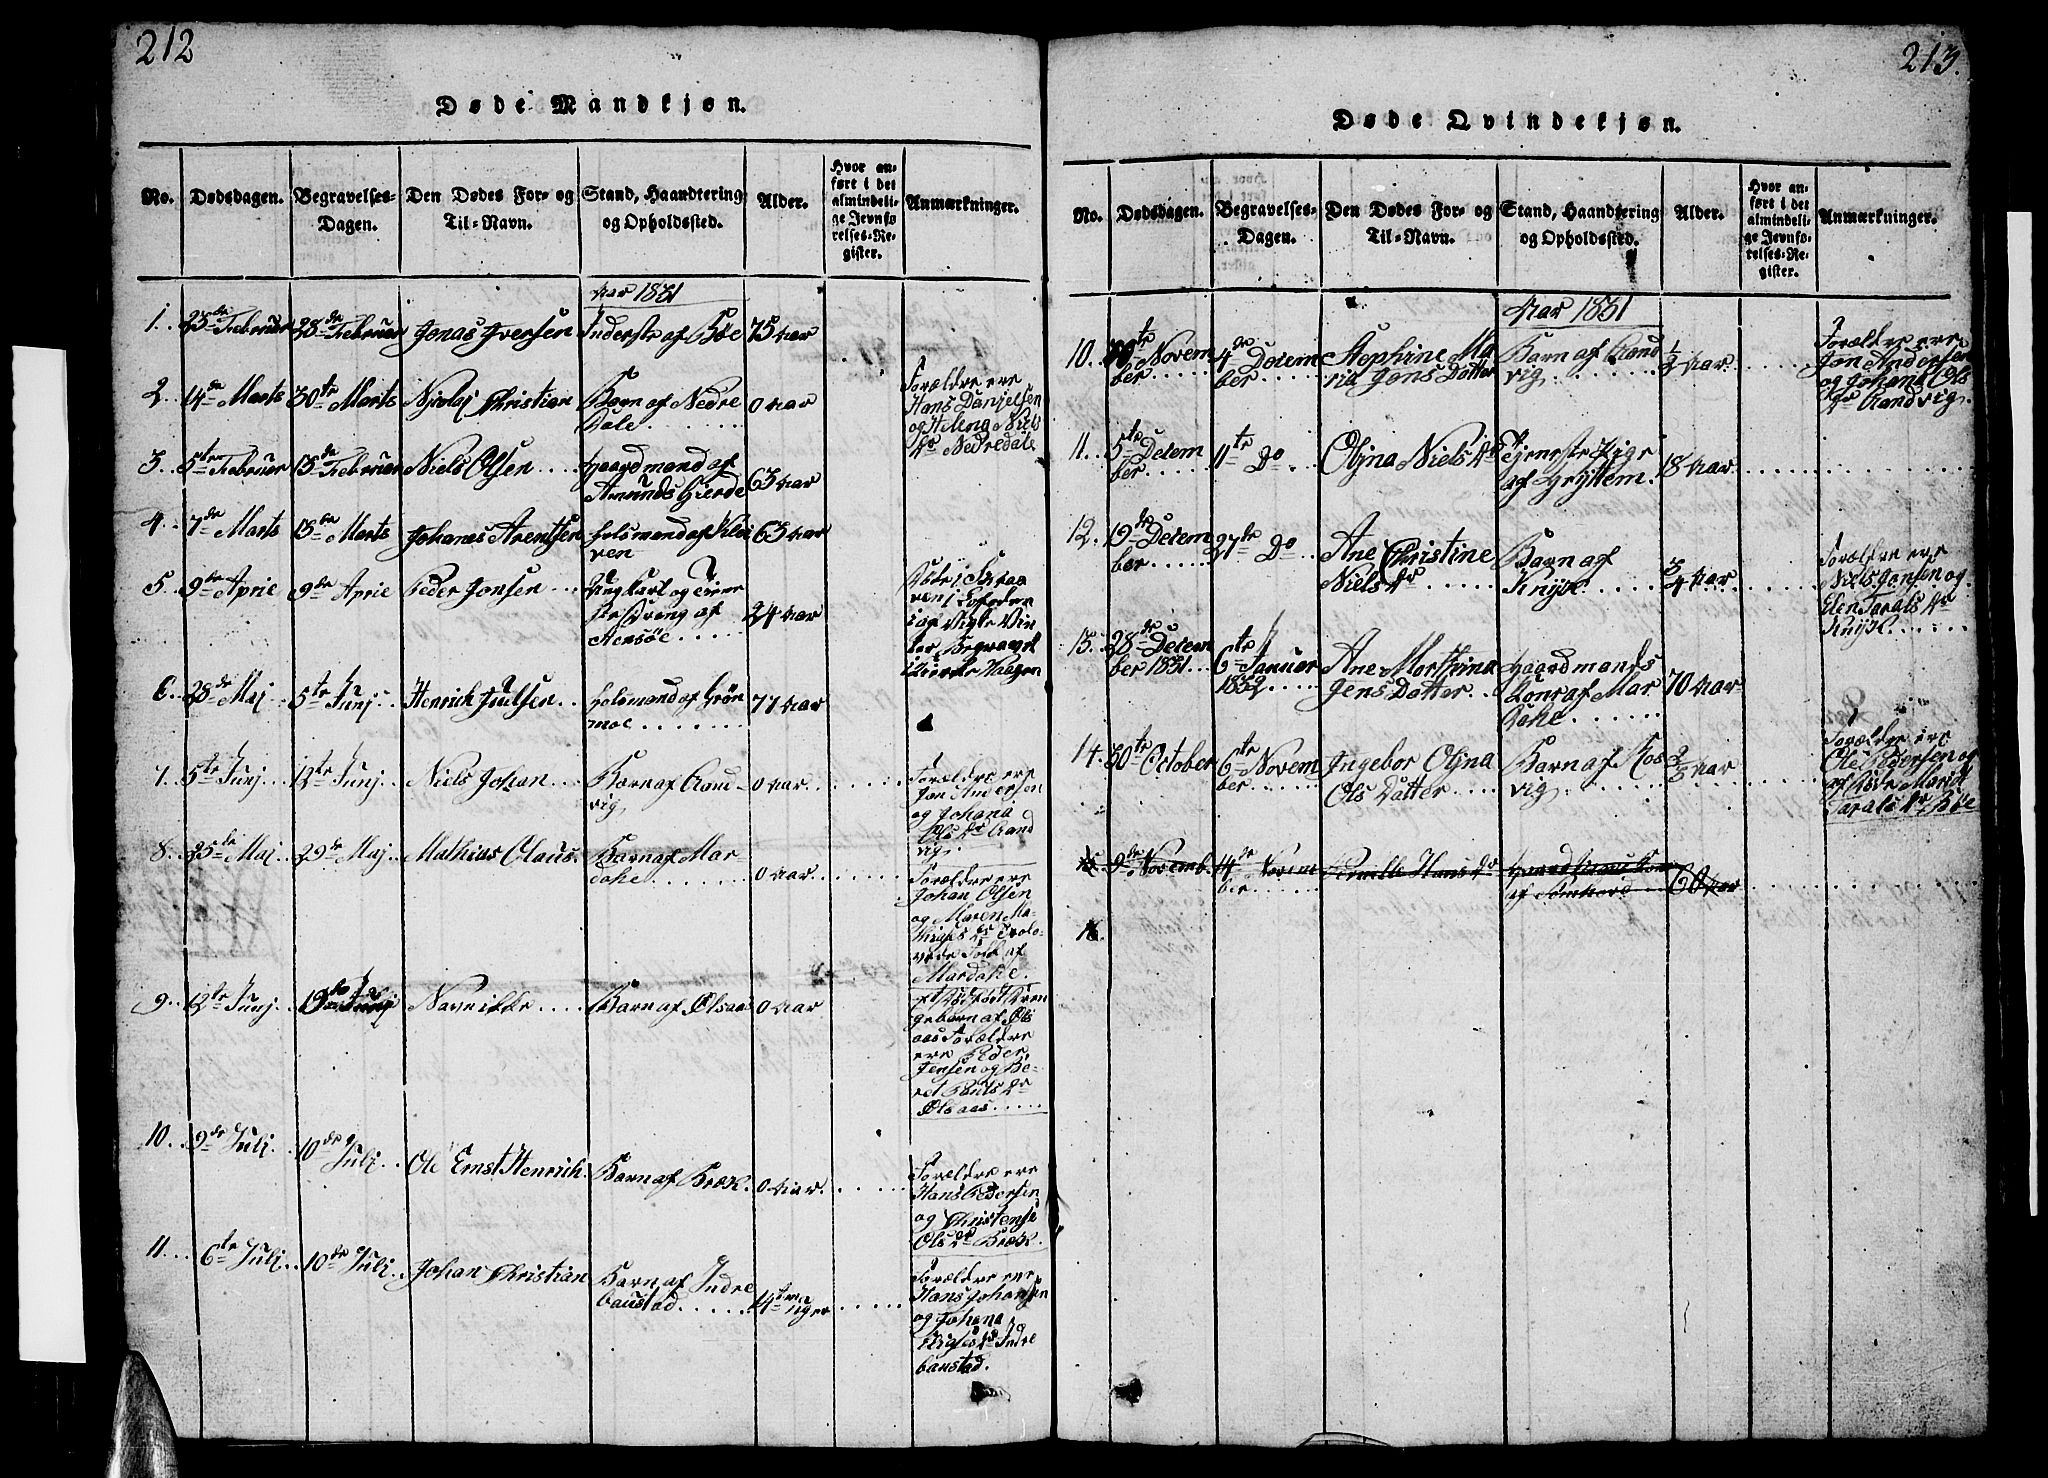 212
Døde Mandkjøn.
No.
Dødsdagen.
Begravelses-
Dagen.
Den Dødes For- og
Til-Navn.
Stand, Haandtering
og Opholdssted.
Alder.
Hvor an-
ført i det
almindeli-
ge Jevnfø-
relses-Re-
gister.
Anmærkninger.
Aar 1831
1. 23de Februar 28de Februar Jonas Iversen Inderste af Bøe 75 Aar
2. 14de Marts 30te Marts Nicolaj Christian Barn af Nedre
Dale 0 Aar
Forældre ere
Hans Danjelsen
og Helena Niels
Dr Nedredale
3. 5te Februar 13de Februar Niels Olsen Gaardmand af
Amunds Gierde 63 Aar
4. 7de Marts 13de Marts Johanes Arentsen Holsmand af Klei
ven 63 Aar
5. 9de April 9de April Peder Jonsen Ungkarl og Tiene
ste Dreng af
Aensøe 24 Aar
Døde i Skraa
ven i Lofoden
Vin
ter, Begravet
6. 28de Maj 5te Junj Henrich Juulsen Holsmand af Grøn
moe 77 Aar
7. 5te Junj 12te Junj Niels Johan Barn af Rand
vig 0 Aar
Forældre ere
Jon Andersen
og Johana
Ols Dr Rand
vig.
8. 25de Maj 29de Maj Mathias Claus. Barn af Mar
dahe 0 Aar
Forældre ere
Johan Olsen
og Maren Ma-
thias Dr Trolo-
vede Folk af
Mardahe.
9. 12te Junj 19de Junj Navnilde Barn af Olsaas 0 Aar
et Død Født Dren
gebarn af Ols
aas Forældre
ere Peder
Jensen og Be-
ret Pouls Dr
Olsaas
10. 9de Juli 10de Juli Ole Ernst Henrich. Barn af Bræk. 0 Aar.
Forældre ere
Hans Pedersen
og Christense
Ols Dr Bræk.
11. 6te Juli 10de Juli Johan Christian Barn af Indre
baustad 14ten
Forældre ere
Hans Johansen
og Johana
Indre
baustad.
213.
Døde Qvindekjøn.
No.
Dødsdagen.
Begravelses-
Dagen.
Den Dødes For- og
Til-Navn.
Stand, Haandtering
og Opholdssted.
Alder.
Hvor an-
ført i det
almindeli-
ge Jevnfø-
relses-Re-
gister.
Anmærkninger.
Aar 1831
10. Novem
ber 4de Decem
ber Stephine Ma
ria Jons Datter Barn af Rand
vig 1/2 Aar
Forældre ere
Jon Andersen
og Johana Ols
Dr Randvig.
11. 5te Decem
ber 11te Do Oljna Niels Dr Tjeneste Pige
af Gryttem. 18 Aar
12. 19de Decem
ber 27de Do Ane Christine
Niels Dr Barn af
Knyk 3/4 Aar
Forældre ere
Niels Jonsen og
Elen Tarals Dr
Knyk
13. 28de Decem
ber 1831 6te Januar
1832 Ane Marthina
Jens Datter Gaardmands
Kone af Mar
dahe 70 Aar
14. 30te October 6te Novem
ber Ingebor Oljna
Ols Datter Barn af Ros
vig 2/3 Aar
Forældre ere
Ole Pedersen og
Marit
Tarals Dr Bøe
15 9de Novemb. 14de Novem
ber Pernille Hans Dr
af 60 Aar
16.